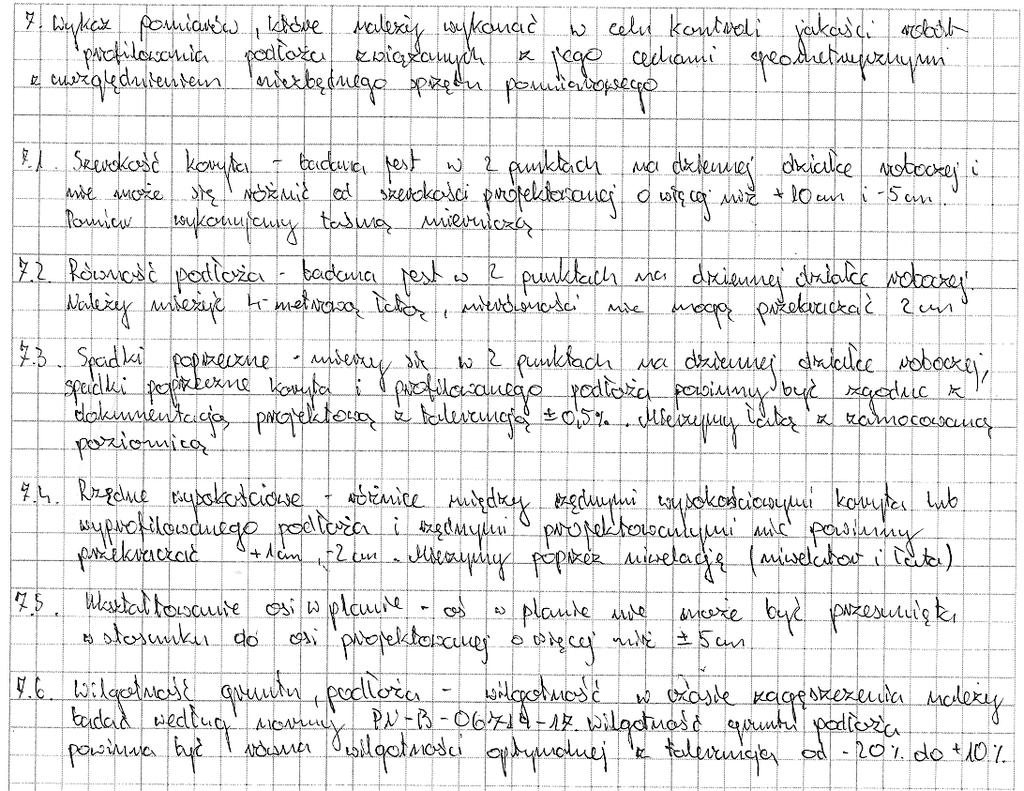 7. Wykaz pomiarów, które należy wykonać w celu kontroli jakości robót
profilowania podłoża związanych z jego cechami geometrycznymi
z uwzględnieniem niezbędnego sprzętu pomiarowego
7.1. Szerokość koryta - badana jest w 2 punktach na dziennej działce roboczej i
nie może się różnić od szerokości projektowanej o więcej niż +10cm i -5cm.
Pomiar wykonujemy taśmą mierniczą
7.2. Równość podłoża - badana jest w 2 punktach na dziennej działce roboczej.
Należy mierzyć 4-metrową łatą, nierówności nie mogą przekraczać 2cm
7.3. Spadki poprzeczne - mierzy się w 2 punktach na dziennej działce roboczej,
spadki poprzeczne koryta i profilowanego podłoża powinny być zgodne z
dokumentacją projektową z tolerancją ±0,5%. Mierzymy łatą z zamocowaną
poziomicą
7.4. Rzędne wysokościowe - różnice między rzędnymi wysokościowymi koryta lub
wyprofilowanego podłoża i rzędnymi projektowanymi nie powinny
przekraczać +1cm, -2cm. Mierzymy poprzez niwelację (niwelator i łata)
7.5. Ukształtowanie osi w planie - oś w planie nie może być przesunięta
w stosunku do osi projektowanej o więcej niż ±5cm
7.6. Wilgotność gruntu podłoża - wilgotność w czasie zagęszczenia należy
badać według normy PN-B-06714-17. Wilgotność gruntu podłoża
powinna być równa wilgotności optymalnej z tolerancją od -20% do +10%.